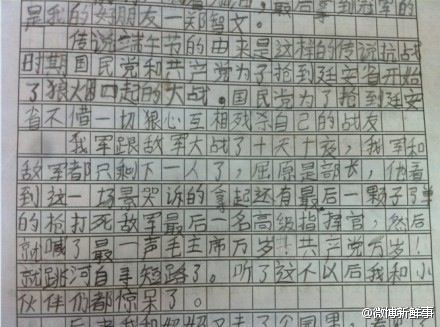 是我的好朋友一郑智文。
传说端午节的由来是这样的传说抗战
时期国民党和共产党为了抢到延安省开始
了狼烟四起的大战。国民党为了抢到延安
省不惜一切狠心互相残杀自己的战友
我军跟敌军大战了十天十夜，我军和
敌军都只剩下一人了，屈原是部长，他看
到这一场景哭诉的拿起还有最后一颗子弹
的枪打死敌军最后一名高级指挥官，然后
就喊了最一声毛主席万岁！共产党万岁！
就跳河自寻短路了。听了这个以后我和小
伙伴们都惊呆了。
@微博新鲜事